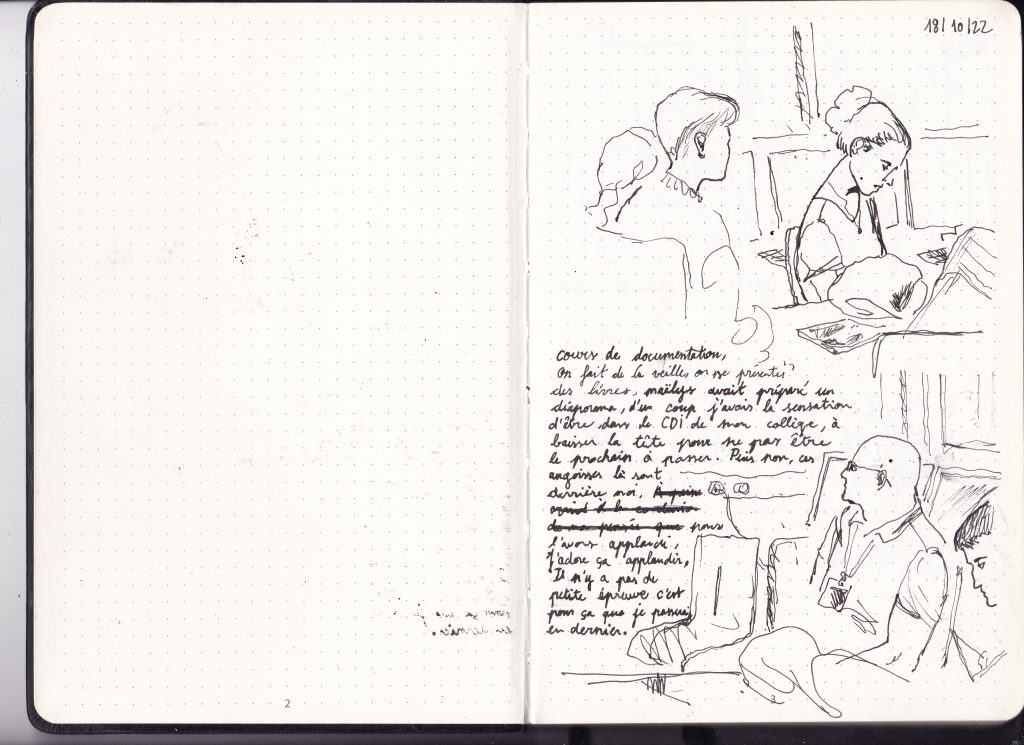 18/10/22
cours de documentation,
on fait de la veille, on se présente
des livres, maëlys avait préparé un
diaporama, d'un coup j'avais la sensation
d'être dans le CDI de mon collège, à
baisser la tête pour ne pas être
le prochain à passer. Puis non, ces
angoisses là sont
derrière moi.
nous
l'avons applaudi,
J'adore ça applaudir,
Il n'y a pas de
petite épreuve c'est
pour ça que je passerai
en dernier.
2
3